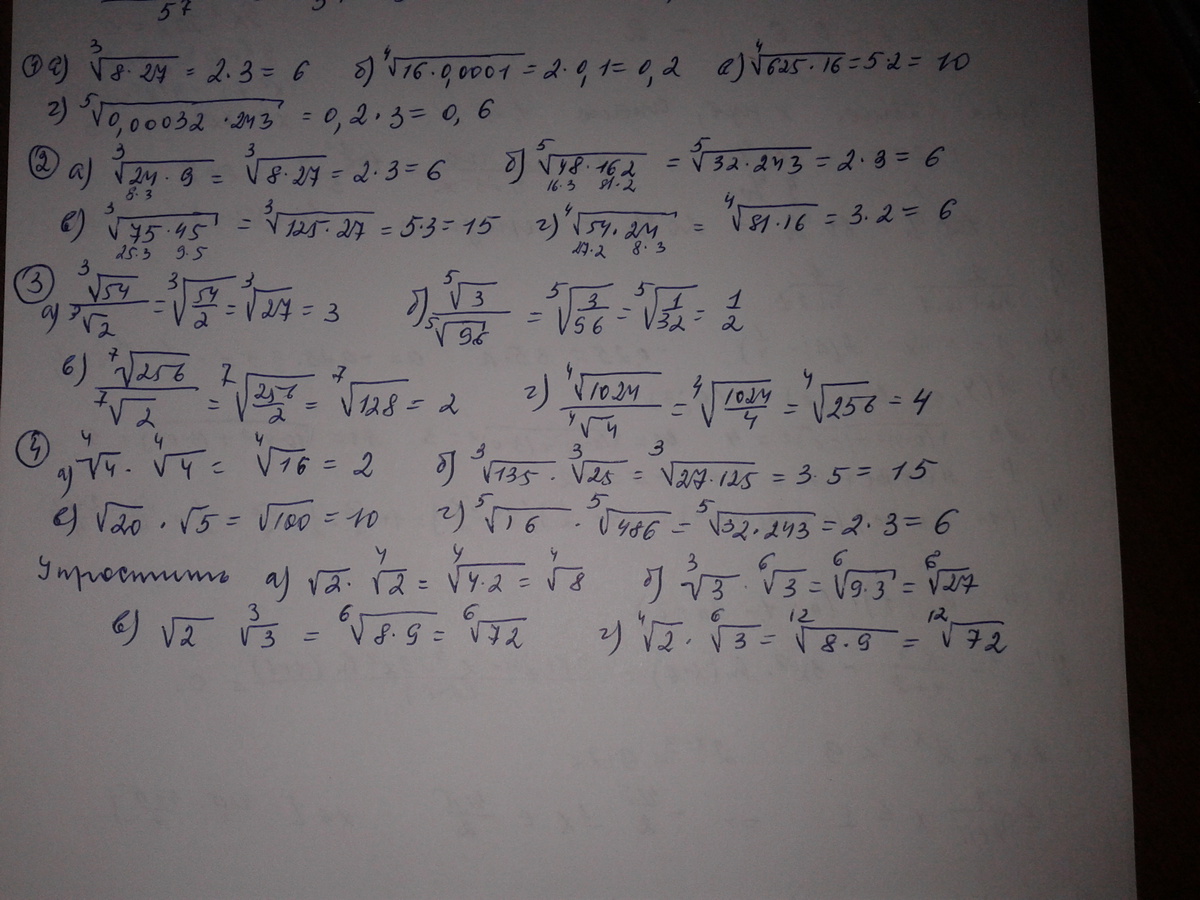 5⁷
① а) ∛(8·27) = 2·3 = 6 б) ⁴√(16·0,0001) = 2·0,1 = 0,2 в) ⁴√(625·16) = 5·2 = 10
г) ⁵√(0,00032·243) = 0,2·3 = 0,6
② а) ³√(24·9) = ³√(8·27) = 2·3 = 6 б) ⁵√(48·162) = ⁵√(32·243) = 2·3 = 6
8·3 16·3 81·2
в) ³√(75·45) = ³√(125·27) = 5·3 = 15 г) ⁴√(54·24) = ⁴√(81·16) = 3·2 = 6
25·3 9·5 27·2 8·3
③ а) ³√54/³√2 = ³√(54/2) = ³√27 = 3 б) ⁵√3/⁵√96 = ⁵√(3/96) = ⁵√(1/32) = 1/2
в) ⁷√256/⁷√2 = ⁷√(256/2) = ⁷√128 = 2 г) ⁴√1024/⁴√4 = ⁴√(1024/4) = ⁴√256 = 4
④ а) ⁴√4 · ⁴√4 = ⁴√16 = 2 б) ³√135 · ³√25 = ³√(27·125) = 3·5 = 15
в) √20 · √5 = √100 = 10 г) ⁵√16 · ⁵√486 = ⁵√(32·243) = 2·3 = 6
Упростить а) √2 · ⁴√2 = ⁴√(4·2) = ⁴√8 б) ³√3 · ⁶√3 = ⁶√(9·3) = ⁶√27
в) √2 ³√3 = ⁶√(8·9) = ⁶√72 г) ⁴√2 · ⁶√3 = ¹²√(8·9) = ¹²√72